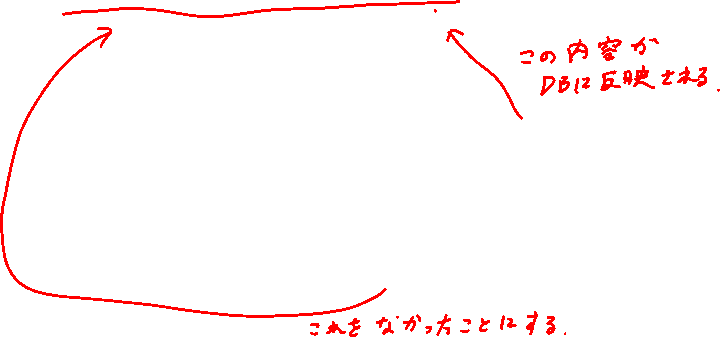 この内容が
DBに反映される.
これをなかったことにする.